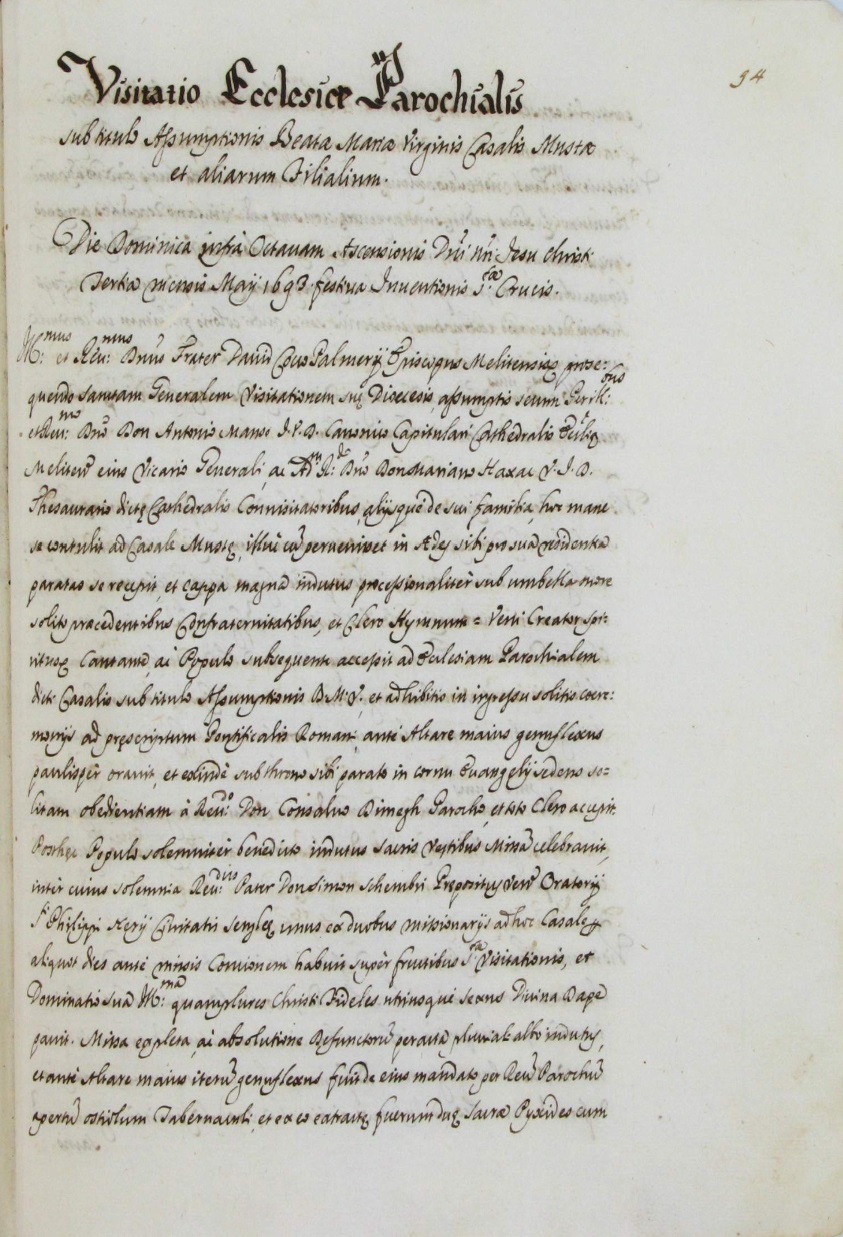 54
Visitatio Ecclesiæ Parochialis
sub titulo Assumptionis Beatæ Mariæ Virginis Casalis Mustæ
et aliarum Filialium.
Die Dominica infra Octauam Ascensionis Dñi ñri Jesu Christi
Tertia mensis Maij 1693. festiua Inuentionis S.tæ Crucis.
Ill:mus et Reu:mus Dñus Frater Dauid Cocus Palmerij Episcopus Melitensis, prose:
quendo sanctam Generalem Visitationem suę Diœcesis, assumptis secum Perill:
et Reu:mo Dño Don Antonio Manso J.V.D. Canonico Capitulari Cathedralis Eccłię
Meliteñ eius Vicario Generali, ac Adm R:do Dño Don Mariano Haxac V.J.D.
Thesaurario dictę Cathedralis Conuisitatoribus, alijsque de sui familia, hoc mane
se contulit ad Casale Mustę, illuc cũ peruenisset in Ædes sibi pro sua residentia
paratas se recepit, et cappa magna indutus, processionalitèr sub umbella more
solito præcedentibus Confraternitatibus, et Clero Hymnum = Veni Creator Spi-
ritus, Cantante, ac Populo subsequente accessit ad Ecclesiam Parochialem
dicti Casalis sub titulo Assumptionis B.M.V., et adhibitis in ingressu solitis cœre:
monijs ad pręscriptum Pontificalis Romani, antè Altare maius genuflexus
paulispèr orauit, et exindè sub throno sibi parato in cornu Euangelij sedens so=
litam obedientiam à Reu:do Don Consaluo Bimegh Parocho, et toto Clero accepit.
Posthęc Populo solemnitèr benedicto indutus sacris Vestibus Missã celebrauit,
intèr cuius solemnia Reu:dus Pater Don Simon Schembri Prępositus Veñ Oratorij
S.ti Philippi Nerij Ciuitatis Sengleę unus ex duobus missionarijs ad hoc Casale
aliquot dies antè missis Concionem habuit supèr fructibus S.tæ Visitationis, et
Dominatio sua Ill:ma quamplures Christi Fideles utriusque sexus Diuina Dape
pauit. Missa expleta, ac absolutione Defunctorũ peracta pluuiali albo indutus,
et antè Altare maius iterũ genuflexus fuit de eius mandato per Reũ Parochũ
apertũ ostiolum Tabernaculi, et ex eo extractę fuerunt duę Sacræ Pyxides cum